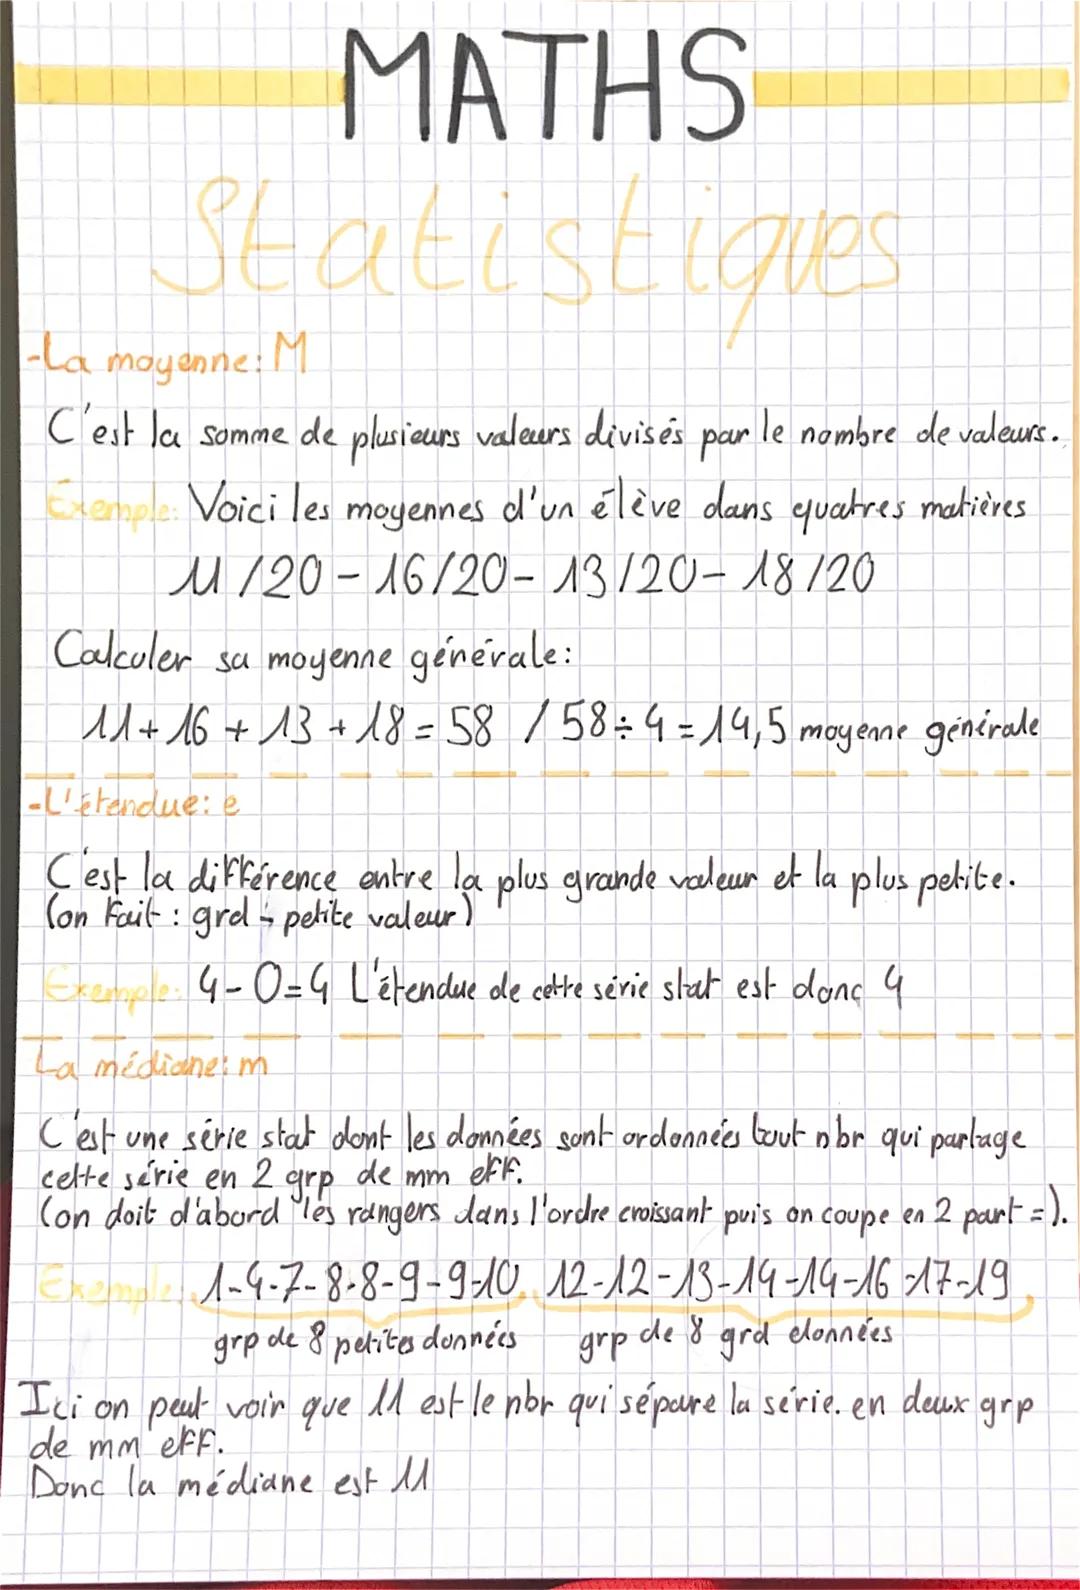 MATHS
Statistiques
-La moyenne: M
C'est la somme de plusieurs valeurs divisés par le nombre de valeurs.
Exemple: Voici les moyennes d'un élève dans quatres matières
11/20 - 16/20 - 13/20 - 18/20
Calculer sa moyenne générale:
11 + 16 + 13 + 18 = 58 / 58 ÷ 4 = 14,5 moyenne générale
-L'étendue: e
C'est la différence entre la plus grande valeur et la plus petite.
(on fait : grd - petite valeur)
Exemple: 4-0=4 L'étendue de cette série stat est donc 4
La médiane: m
C'est une série stat dont les données sont ordonnées tout nbr qui partage
cette série en 2 grp de mm eff.
(on doit d'abord les rangers dans l'ordre croissant puis on coupe en 2 part =).
Exemple: 1-4-7-8-8-9-9-10 12-12-13-14-14-16-17-19
grp de 8 petites données grp de 8 grd données
Ici on peut voir que 11 est le nbr qui sépare la série. en deux grp
de mm eff.
Donc la médiane est 11